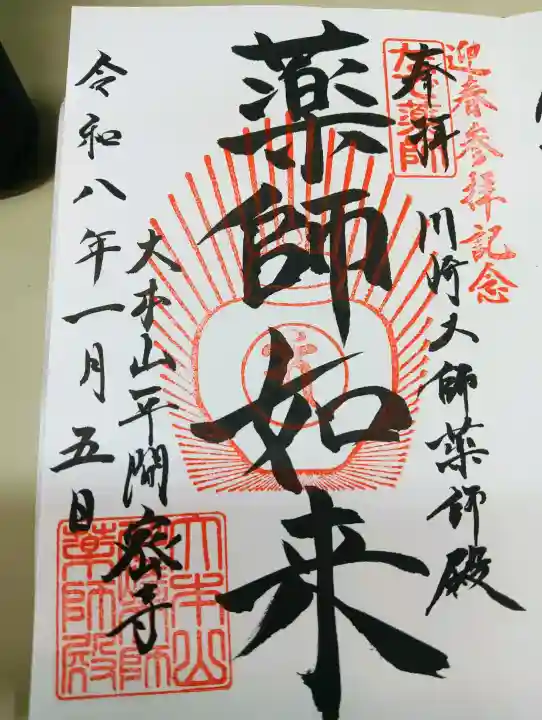 迎春参拝記念
奉拝
川崎大師薬師殿
薬師如来
大本山平間密寺
令和八年一月五日
なで薬師
大本山
薬師殿